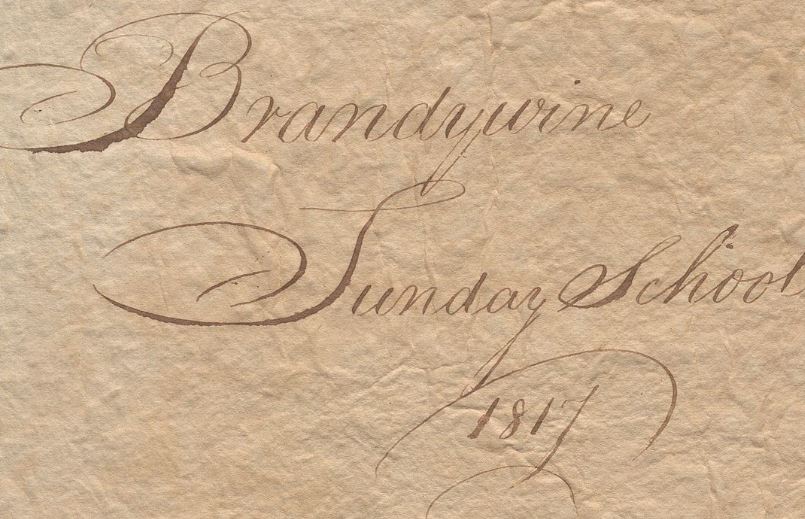 Brandywine
Sunday School
1817